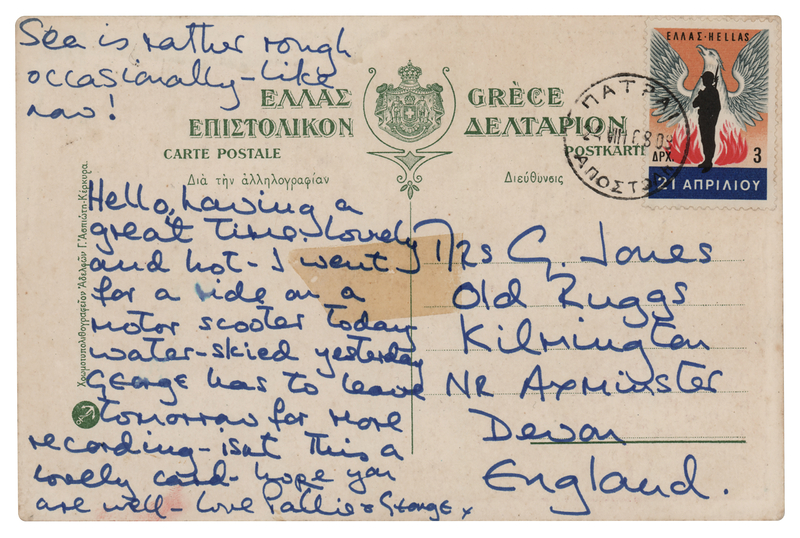 Sea is rather rough
occasionally - like
now!
ΕΛΛΑΣ
ΕΠΙΣΤΟΛΙΚΟΝ
CARTE POSTALE
Διὰ τὴν ἀλληλογραφίαν
GRÈCE
ΔΕΛΤΑΡΙΟΝ
POSTKARTE
Διεύθυνσις
ΕΛΛΑΣ-HELLAS
ΔΡΧ. 3
21 ΑΠΡΙΛΙΟΥ
ΠΑΤΡΑΙ
ΑΠΟΣΤΟΛΗ
Χρωμοτυπολιθογραφεῖον Ἀδελφῶν Γ. Ἀσπιώτη-Κέρκυρα.
Hello, having a
great time. lovely
and hot - I went
for a ride on a
motor scooter today
water-skied yesterday
George has to leave
tomorrow for more
recording - isnt this a
lovely card - hope you
are well - love Pattie & George x
Mrs G. Jones
Old Ruggs
Kilmington
NR Axminster
Devon
England.